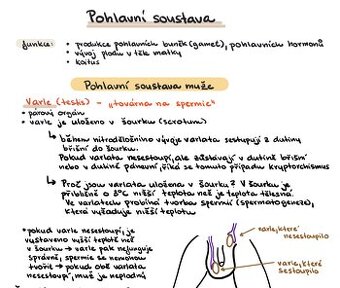 Pohlavní soustava
funkce: • produkce pohlavních buněk (gamet), pohlavních hormonů
• vývoj plodu v těle matky
• koitus
Pohlavní soustava muže
Varle (testis) - „továrna na spermie"
• párový orgán
• varle je uloženo v šourku (scrotum)
↳ během nitroděložního vývoje varlata sestupují z dutiny
břišní do šourku.
Pokud varlata nesestoupí, ale zůstávají v dutině břišní
nebo v dutině pánevní, říká se tomuto případu kryptorchismus
↳ Proč jsou varlata uložena v šourku? V šourku je
přibližně o 3°C nižší teplota než je teplota tělesná.
Ve varlatech probíhá tvorba spermií (spermatogeneze),
která vyžaduje nižší teplotu
• pokud varle nesestoupí, je
vystaveno vyšší teplotě než
v šourku → varle pak nefunguje
správně, spermie se nemohou
tvořit → pokud obě varlata
nesestoupí, muž je neplodný
varle, které
nesestoupilo
varle, které
sestoupilo